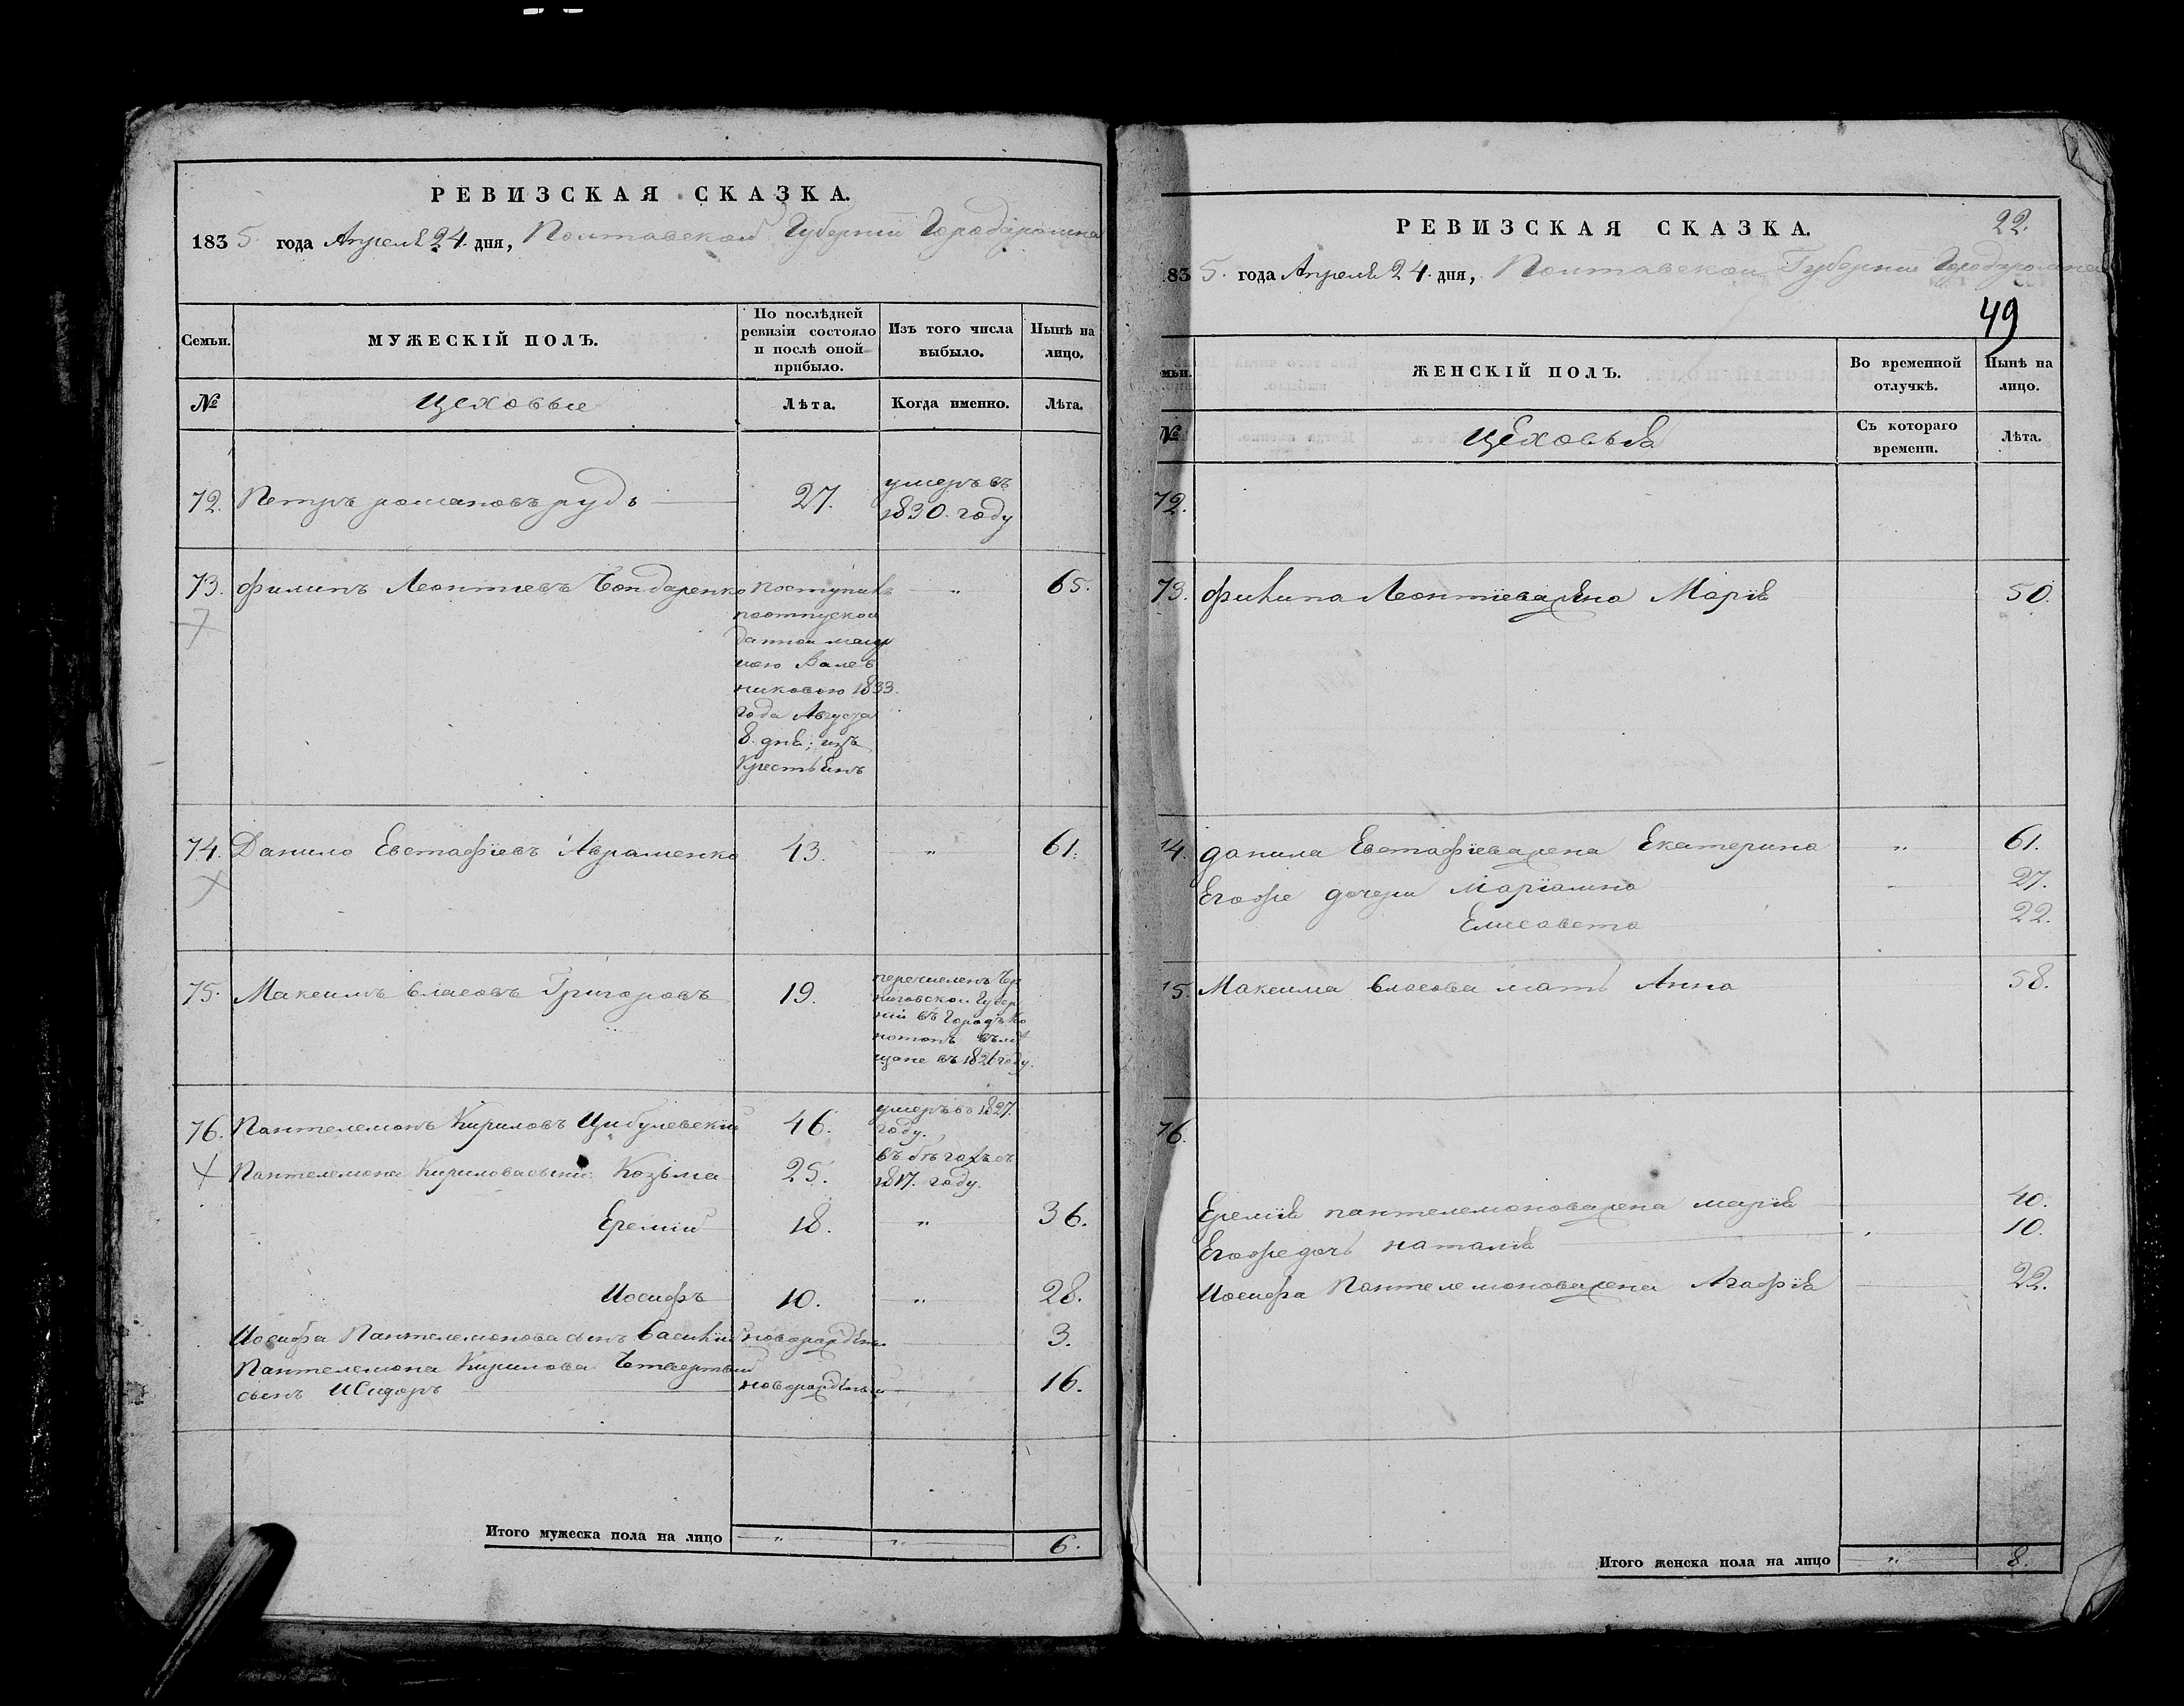 РЕВИЗСКАЯ СКАЗКА.
1835 года Апреля 24. дня, Полтавской Губернии Города Ромна
Семьи. МУЖЕСКІЙ ПОЛЪ. По послѣдней ревизіи состояло и послѣ оной прибыло. Изъ того числа выбыло. Нынѣ на лицо.
№ Цеховые Лѣта. Когда именно. Лѣта.
72. Петръ романовъ рудь 27. умеръ въ
1830. году
73. Филипъ Леонтиевъ Бондаренко поступилъ „ 65.
поотпуской
данной
1833.
года Августа
8. дня; изъ
Крестьянъ
74. Данило Евстафіевъ Авраменко 43. „ 61.
75. Максимъ власовъ Григоровъ 19. перечисленъ Чер
ниговской Губер
ніи въ Городъ Ко
нотопъ въ мѣ
щане въ 1826 году.
76. Пантелемонъ Кириловъ Цибулевскій 46. умеръ въ 1827.
году.
Пантелемона Кирилова сыни: Козьма 25. въ бѣгахъ съ
1817. году.
Еремій 18. „ 36.
Иосифъ 10. „ 28.
Иосифа Пантелемонова сынъ Василій новорожденъ 3.
Пантелемона Кирилова Четвертый
сынъ Исидоръ новорожденый 16.
Итого мужеска пола на лицо „ „ 6.
РЕВИЗСКАЯ СКАЗКА. 22.
835. года Апреля 24. дня, Полтавской Губернии Города Ромна
49
мьи. ЖЕНСКІЙ ПОЛЪ. Во временной отлучкѣ. Нынѣ на лицо.
№ Цеховыя Съ котораго времени. Лѣта.
72.
73. Филипа Леонтіева жена Марія 50.
74. Данила Евстафіева жена Екатерина „ 61.
Его же дочери Маріамна 27.
Елисавета 22.
75. Максима власова мать Анна 58.
76.
Еремія пантелемонова жена марія 40.
Его же дочь наталія 10.
Иосифа Пантелемонова жена Агафія 22.
Итого женска пола на лицо „ 8.